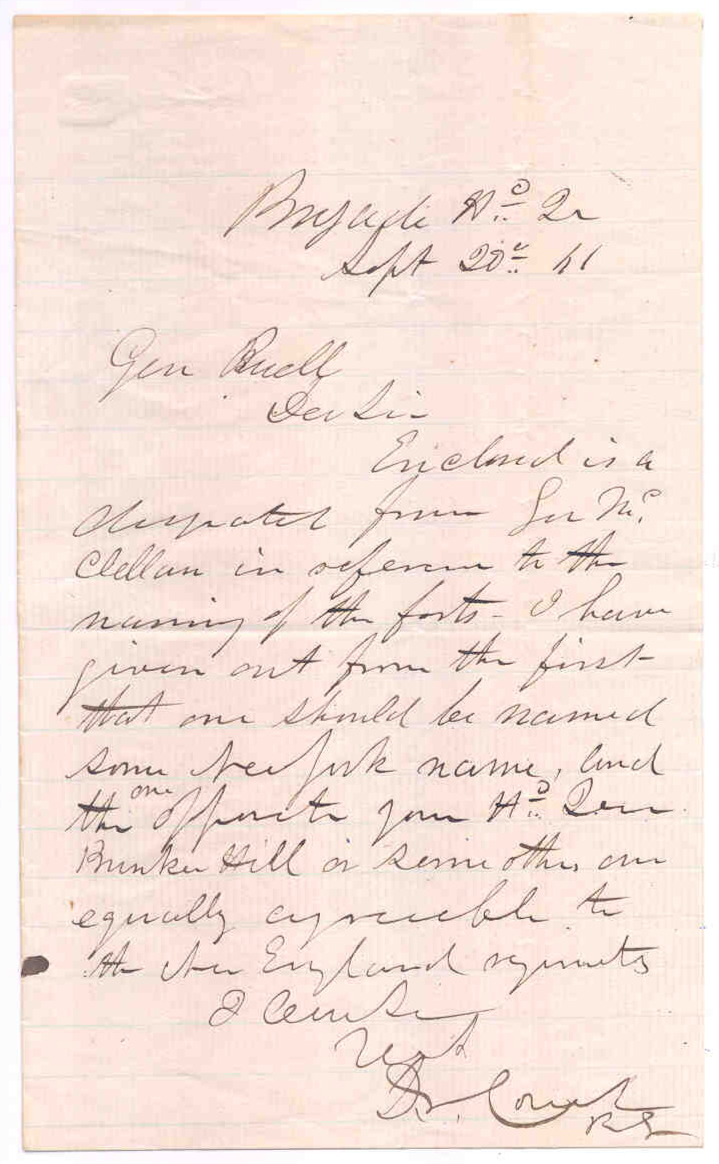 Brigade Hd. Qr
Sept 20th 61
Gen Buell
Dear Sir
Enclosed is a
despatch from Gen Mc
Clellan in reference to the
naming of the forts - I have
given out from the first
that one should be named
some New York name, and
the one opposite your Hd. Qrs
Bunker Hill or some other one
equally agreeable to
the New England regiments
I am Sir
D. N. Couch
B G